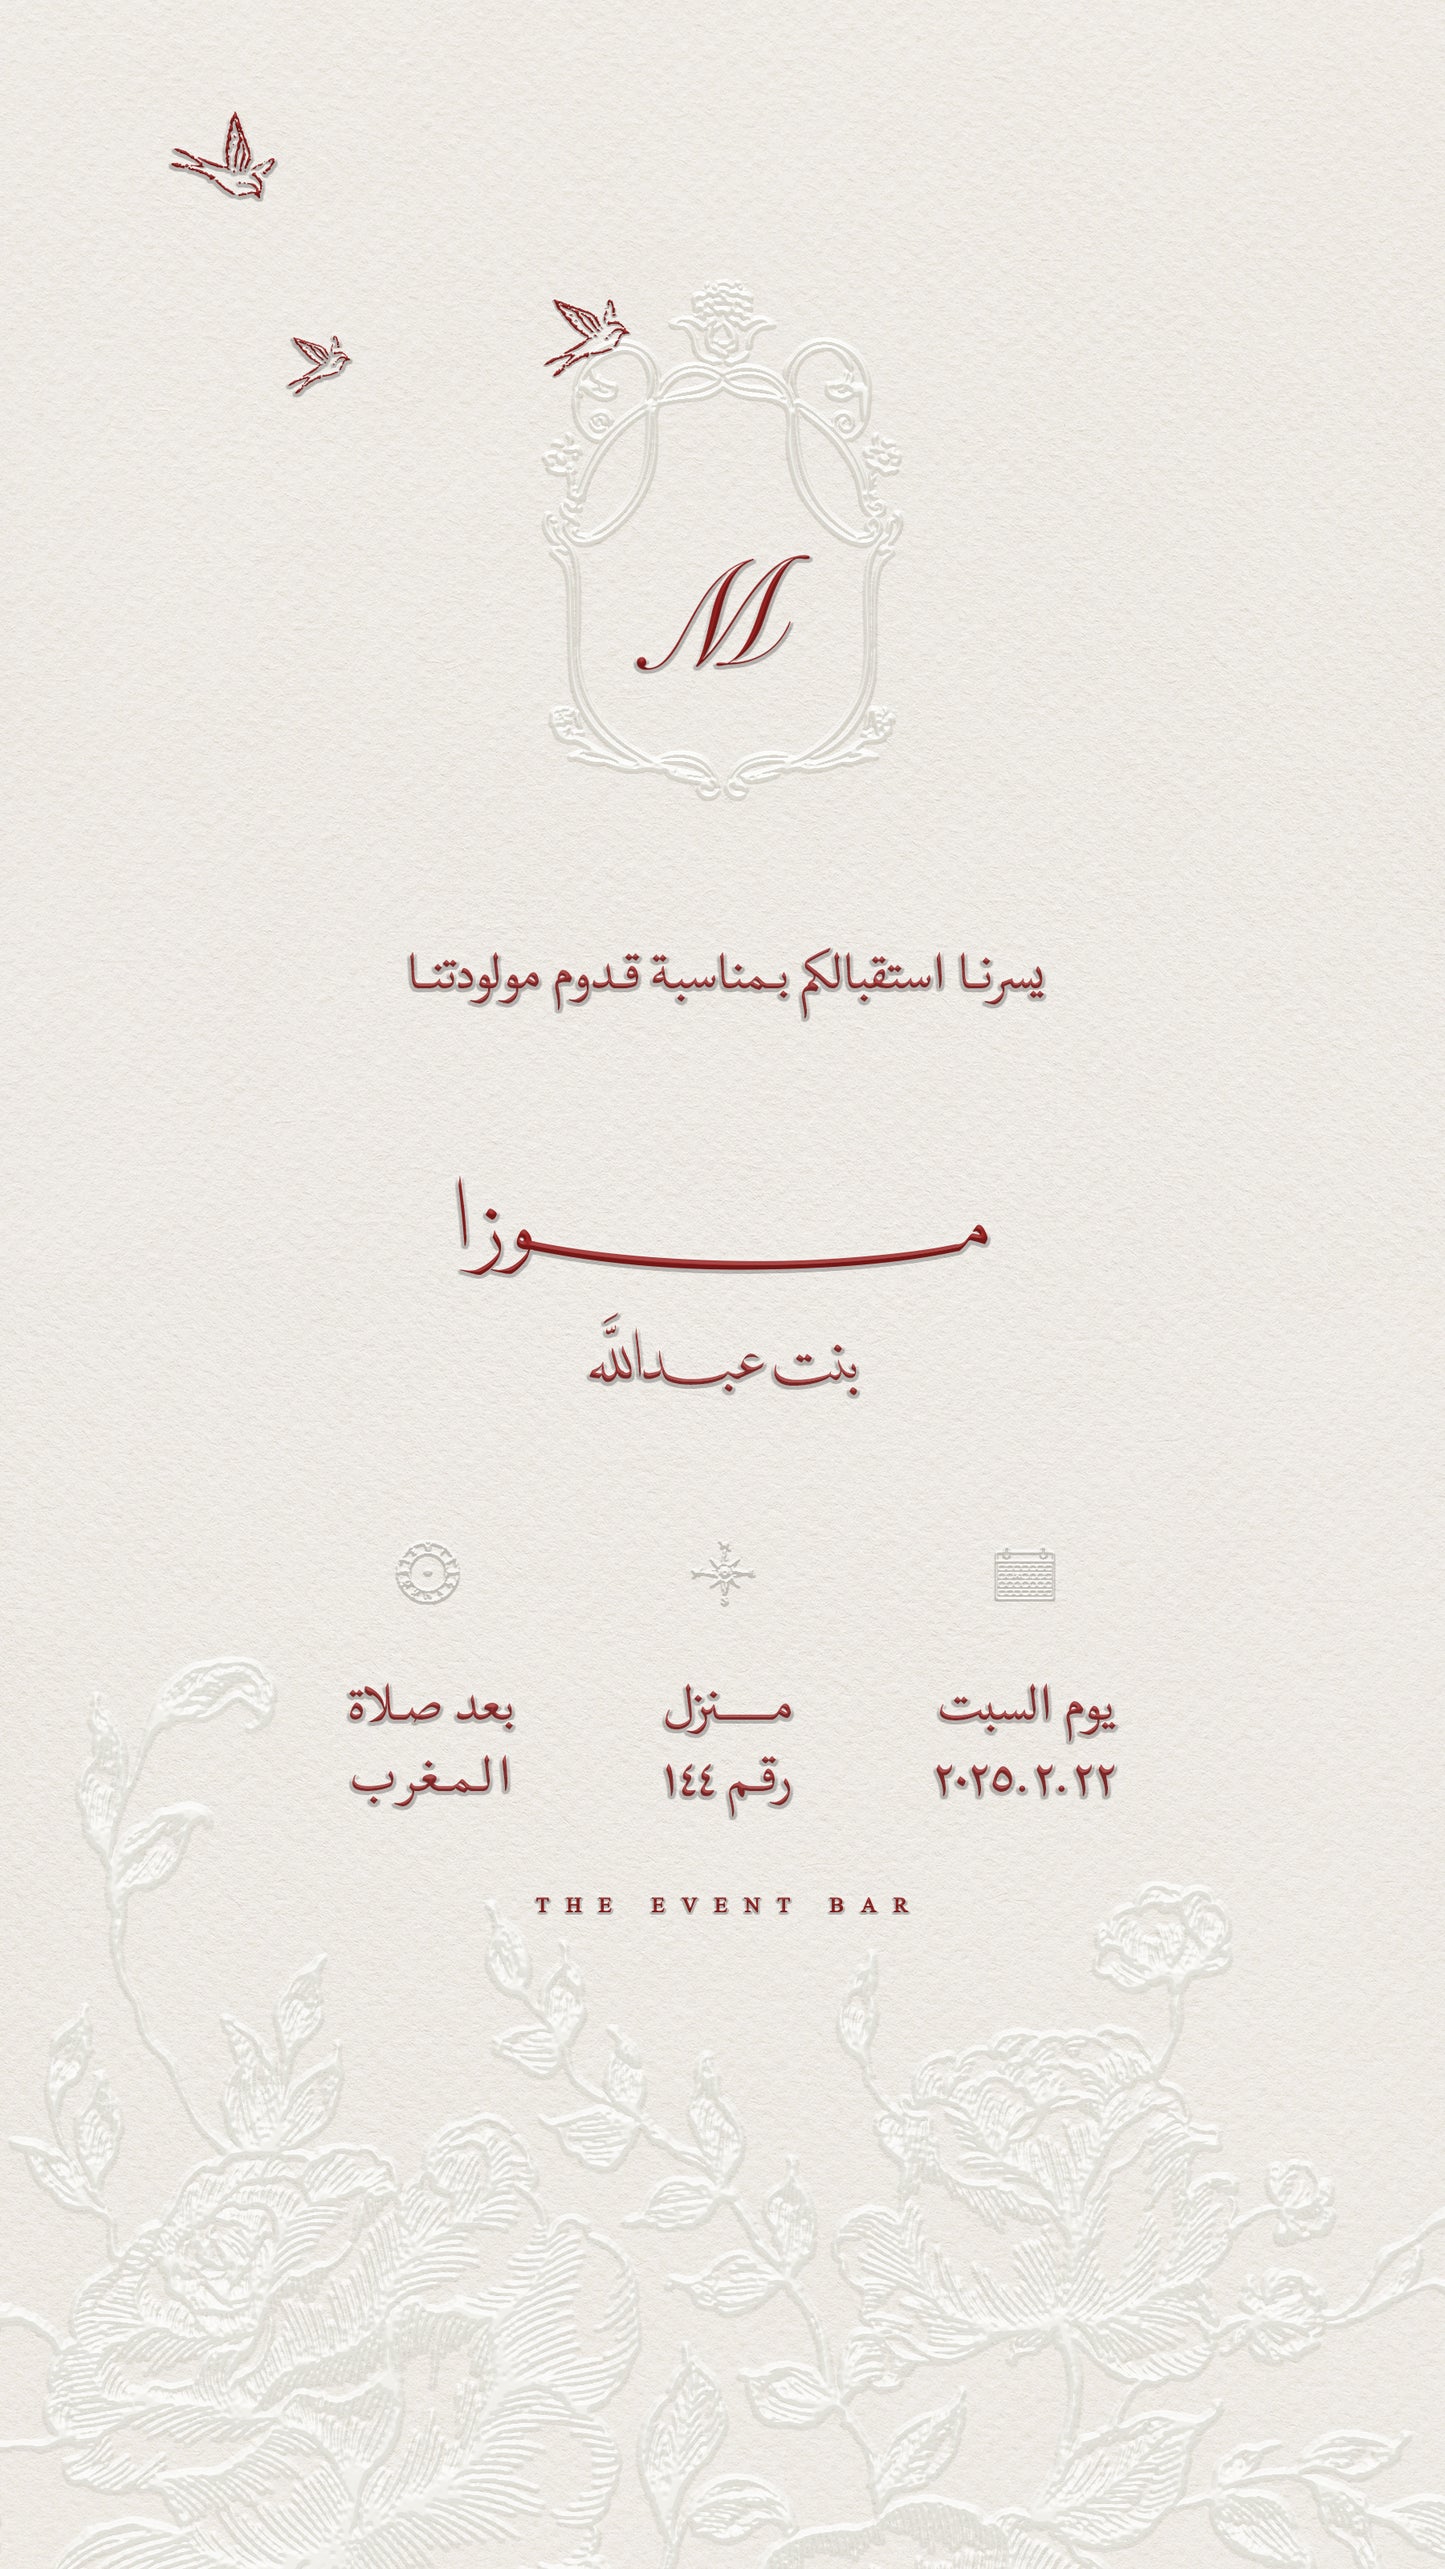 M
يسرنا استقبالكم بمناسبة قدوم مولودتنا
موزا
بنت عبدالله
يوم السبت
٢٠٢٥.٢.٢٢
منزل
رقم ١٤٤
بعد صلاة
المغرب
THE EVENT BAR